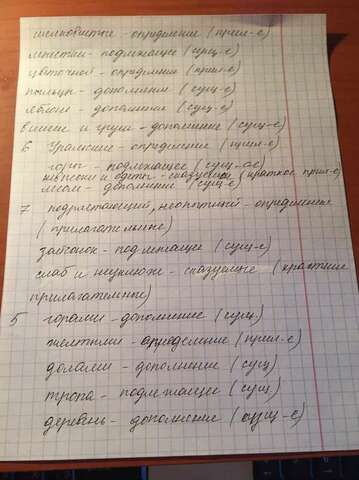 шелковистые - определение (прил-е)
лепестки - подлежащее (сущ-е)
цветочной - определение (прил-е)
пыльцы - дополнением (сущ-е)
яблони - дополнение (сущ-е)
вишни и груши - дополнение (сущ-е)
6 Уральские - определение (прил-е)
горы - подлежащее (сущ-ое)
живописны и богаты - сказуемые (краткое прил-е)
лесом - дополнение (сущ-е)
7 подрастающий, неопытный - определение
(прилагательные)
зайчонок - подлежащее (сущ-е)
слаб и неуклюж - сказуемые (краткие
прилагательные)
5 горами - дополнение (сущ.)
желтыми - определение (прил-е)
долами - дополнение (сущ)
тропа - подлежащее (сущ)
деревень - дополнение (сущ-е)